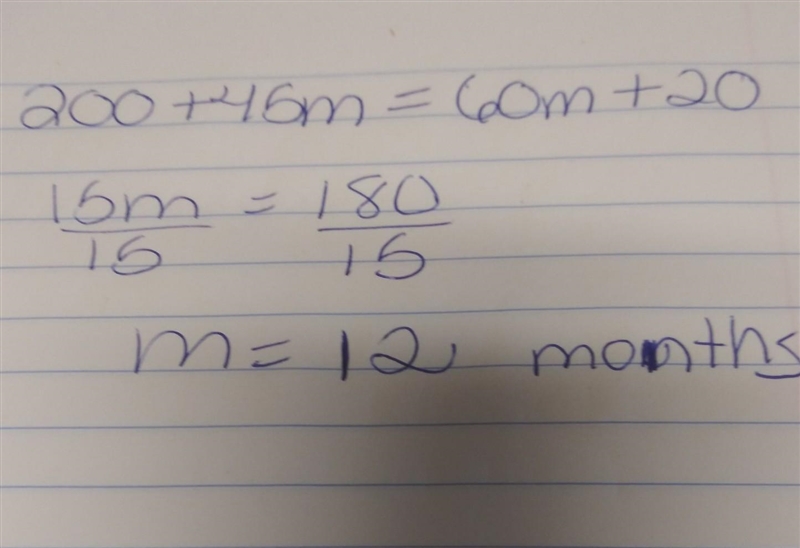 200 + 45m = 60m + 20
15m = 180
15 15
m = 12 months